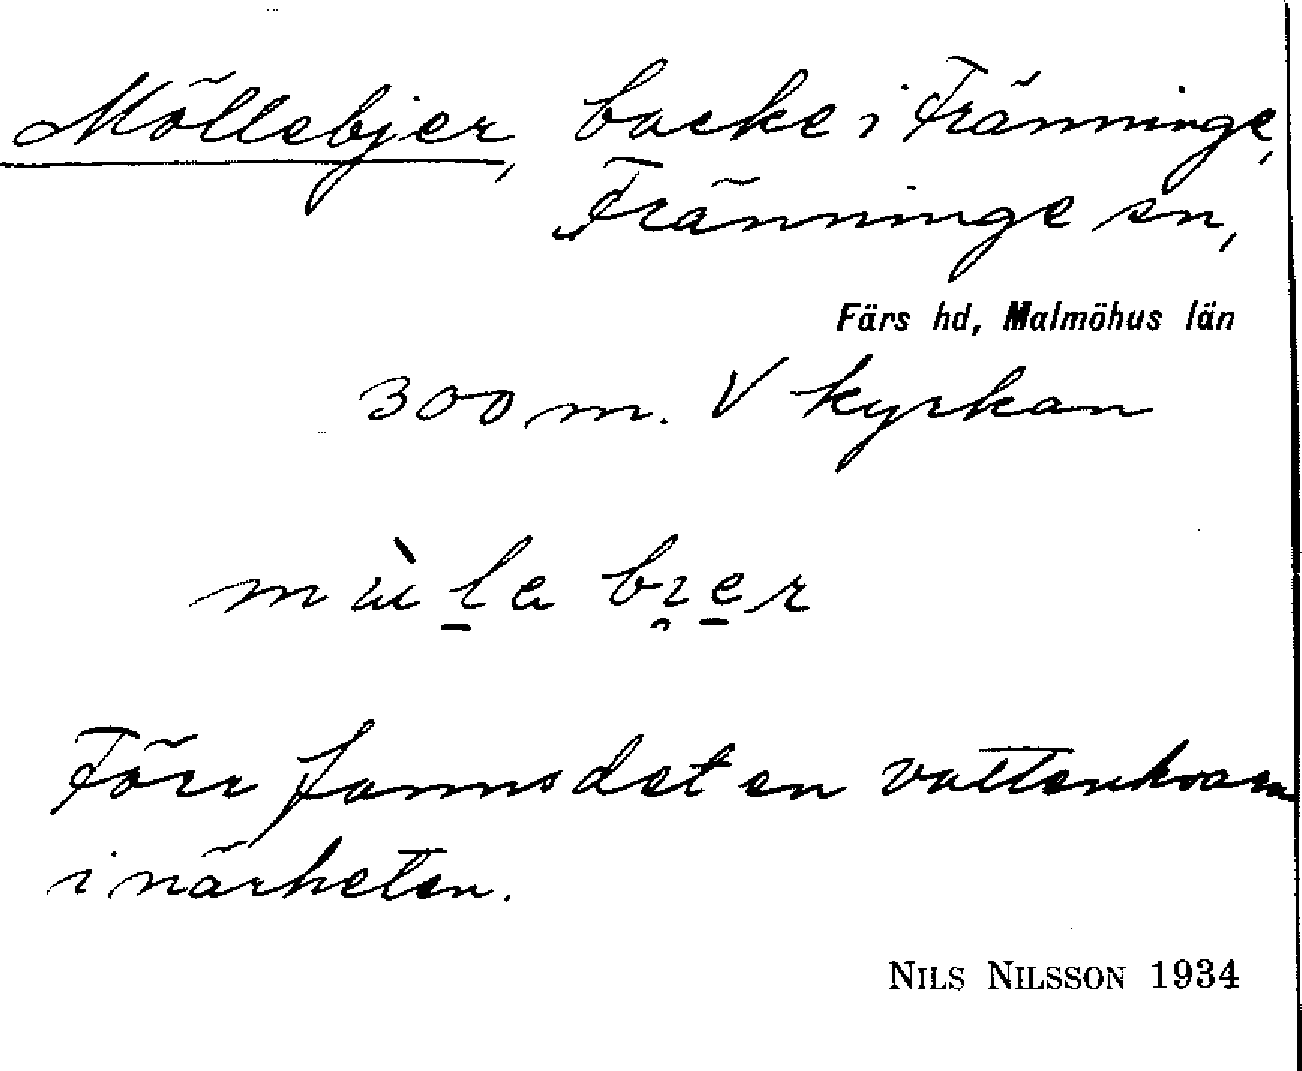 Möllebjer, backe i Tränninge,
Fränninge sn,
Färs hd, Malmöhus län
300 m. V kyrkan
Förr fanns det en vattenkvarn
i närheten.
NILS NILSSON 1934